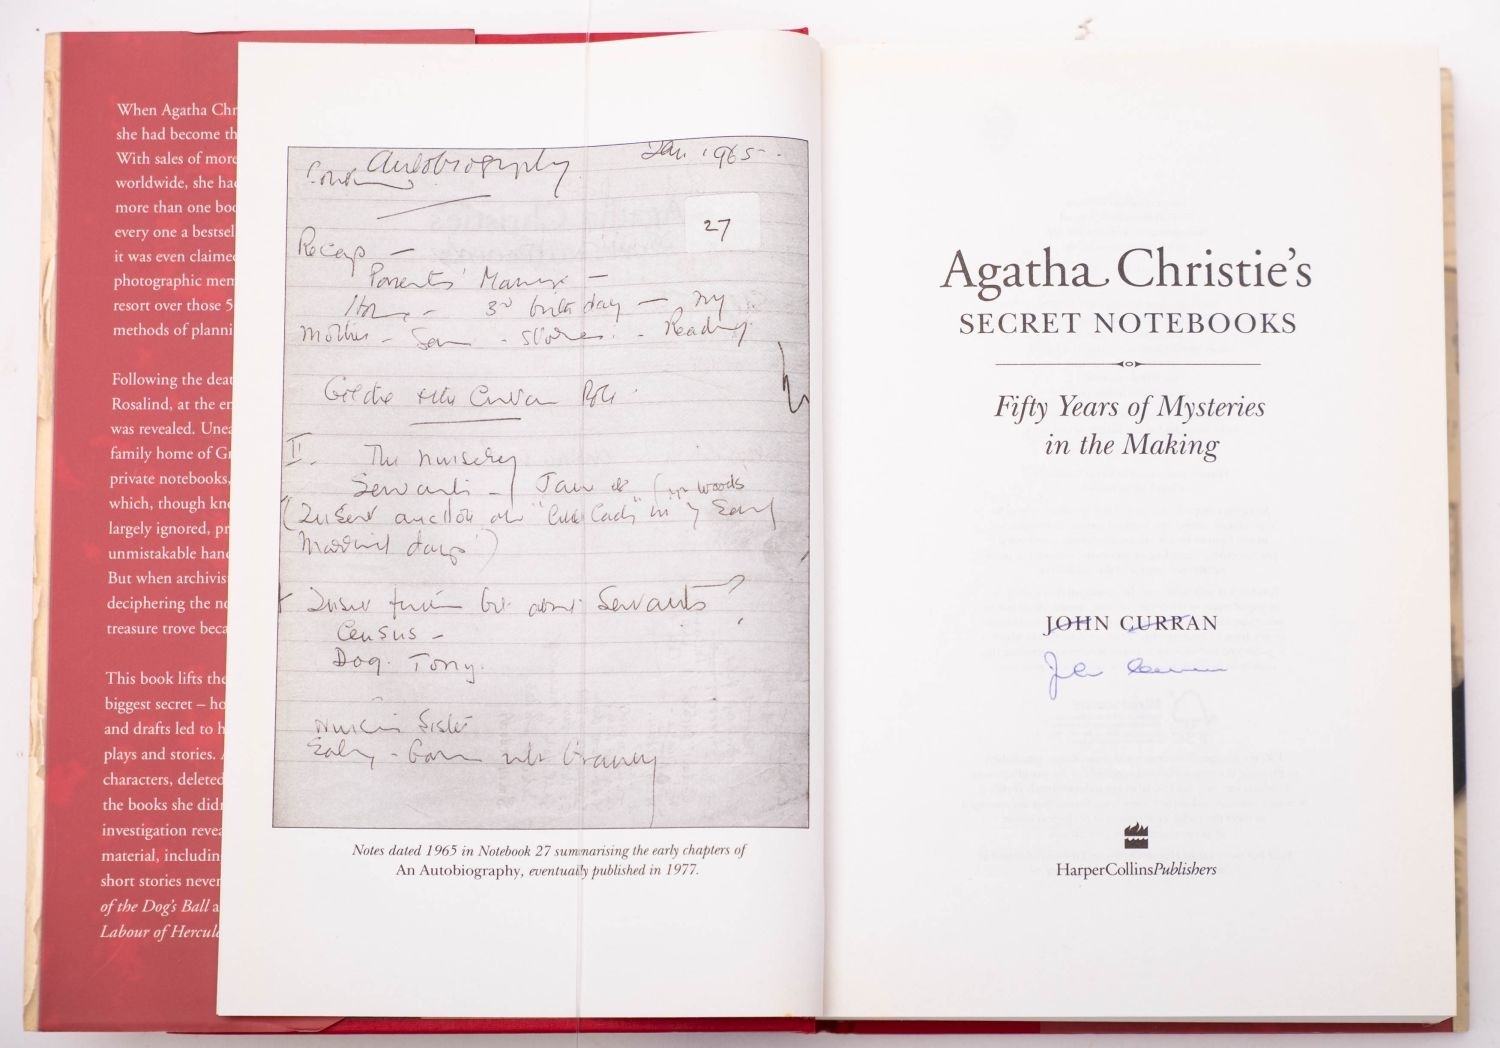 When Agatha Chr
she had become th
With sales of more
worldwide, she had
more than one boo
every one a bestsel
it was even claimed
photographic mem
resort over those 5
methods of planni
Following the deat
Rosalind, at the en
was revealed. Unea
family home of Gr
private notebooks,
which, though kno
largely ignored, pr
unmistakable hand
But when archivis
deciphering the no
treasure trove beca
This book lifts the
biggest secret – ho
and drafts led to h
plays and stories. A
characters, deleted
the books she didn
investigation revea
material, includin
short stories never
of the Dog's Ball a
Labour of Hercule
Autobiography Jan. 1965 -
27
Recap -
Parents' Marriage -
3rd birthday - my
Mother - stories. - Reading
II. The nursery
Servants - Jane &
(Insert auction
married days)
Insert about Servants?
Census -
Dog. Tony.
Sister
Granny
Notes dated 1965 in Notebook 27 summarising the early chapters of
An Autobiography, eventually published in 1977.
Agatha Christie's
SECRET NOTEBOOKS
Fifty Years of Mysteries
in the Making
JOHN CURRAN
John Curran
HarperCollinsPublishers